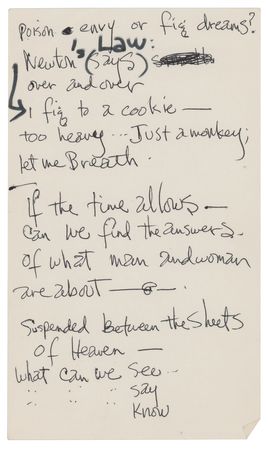 poison - envy or fig dreams?
Newton's Law: (says)
over and over
1 fig to a cookie —
too heavy... Just a monkey;
let me Breath.
If the time allows —
Can we find the answers
of what man and woman
are about —
Suspended Between the Sheets
of Heaven —
What can we see...
" " " " say
know